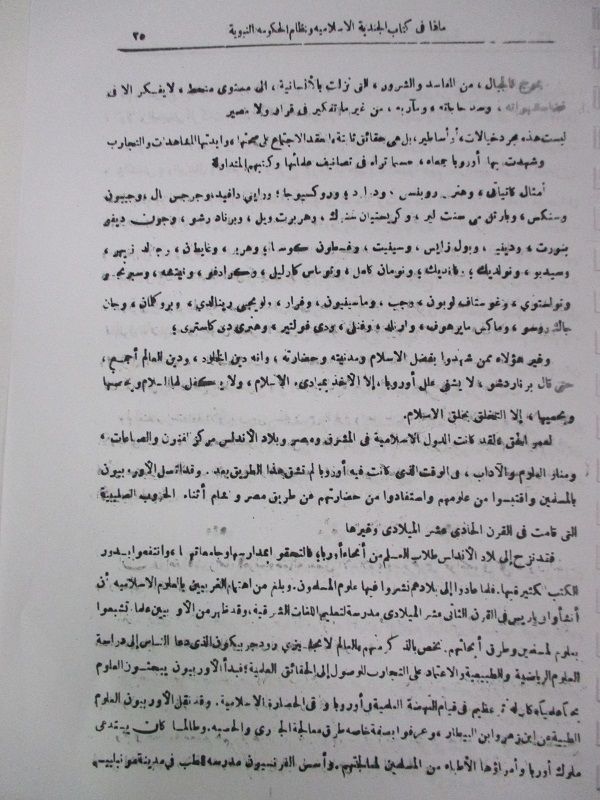 ماذا فى كتاب الجندية الاسلاميه ونظام الحكومه النبوية ٢٥
يموج كالجبال ، من المفاسد والشرور ، التى نزلت بالأنسانية ، الى مستوى منحط ، لا يفكر الا فى
قضاء شهواته ، وسد حاجاته ، ومآربه ، من غير ما تفكير فى قرار ولا مصير
ليست هذه مجرد خيالات ، أو أساطير ، بل هى حقائق ثابتة ، انعقد الاجتماع على صحتها ، وأيدتها المشاهدات والتجارب
وشهدت بها أوروبا جمعاء ، حسبما تراه فى تصانيف علمائها وكتبهم المتداولة
أمثال كانيانى ، وهنرى روبنس ، ودراد ، وروكسيوجا ، ورابى دافيد ، وجرجس ال ، وجيبون
وسنكس ، وبارتلى سنت لير ، وكريستيان ، وهربرت ويل ، وبرنارد شو ، وجون ديفى
بنورت ، وديفير ، وبول زايس ، وسيفيت ، وغسطون كوستا ، وهرير ، وغايطان ، رجاله زيهى ،
وسيديو ، ونولديك ، وفانديك ، ونومان كامل ، وتوماس كارليل ، وكرادفو ، ونيتشه ، وسبرنجر
وتولستوى ، وغوستاف لوبون ، وجب ، وماسينيون ، وفرار ، ولويجى رينالدى ، وبروكلمان ، وجان
جاك روسو ، وماكس مايرهوف ، وارنلد ، وفنلى ، ودى فولتير ، وهنرى دى كاسترى ،
وغير هؤلاء ممن شهدوا بفضل الاسلام ومدنيته وحضارته ، وانه دين الخلود ، ودين العالم أجمع ،
حتى قال برناردشو ، لا يشفى علل أوروبا ، إلا الأخذ بمبادىء الاسلام ، ولا يكفل لها السلام ويحميها
ويحميها ، إلا التخلق بخلق الاسلام.
لعمر الحق ، لقد كانت الدول الاسلامية فى المشرق ومصر وبلاد الأندلس مركز الفنون والصناعات ،
ومنار العلوم والآداب ، فى الوقت الذى كانت فيه أوروبا لم تشق هذا الطريق بعد . وقد اتصل الأوروبيون
بالمسلمين واقتبسوا من علومهم واستفادوا من حضارتهم عن طريق مصر والشام أثناء الحروب الصليبية
التى قامت فى القرن الحادى عشر الميلادى وغيرها
فقد نزح إلى بلاد الأندلس طلاب العلم من أنحاء أوروبا ، فالتحقوا بمدارسها وجامعاتها ، وانتفعوا بدور
الكتب الكثيرة فيها . فلما عادوا إلى بلادهم نشروا فيها علوم المسلمون . وبلغ من اهتمام الغربيين بالعلوم الاسلاميه أن
أنشأوا بباريس فى القرن الثانى عشر الميلادى مدرسة لتعليم اللغات الشرقية ، وقد ظهر من الأوروبيين علماء تشبعوا
بعلوم المسلمين وطرق أبحاثهم . نخص بالذكر منهم العالم الانجليزى روجر بيكون الذى دعا الناس إلى دراسة
العلوم الرياضية والطبيعية والاعتماد على التجارب للوصول إلى الحقائق العلمية ، فبدأ الأوربيون يبحثون العلوم
بحثا علميا كان له أثر عظيم فى قيام النهضة العلمية فى أوروبا وفى الحضارة الاسلامية . وقد نقل الأوربيون العلوم
الطبية عن ابن زهر وابن البيطار ، وعرفوا بصفة خاصه طرق معالجة الجدرى والحصبه . وطالما كان يستدعى
ملوك أوربا وأمراؤها الأطباء من المسلمين لمعالجتهم . وأسس الفرنسيون مدرسه للطب فى مدينة مونبلييه